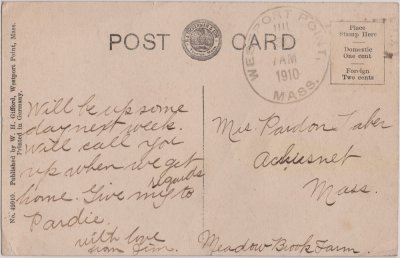 POST CARD
WESTPORT POINT,
JUL
7 AM
1910
MASS.
Place
Stamp Here
Domestic
One cent
Foreign
Two cents
No. 49910 Published by W. H. Gifford, Westport Point, Mass.
Printed in Germany.
Will be up some
day next week.
will call you
up when we get
home. Give my regards to
Pardie.
with love
from
Mrs Pardon Taber
Acushnet
Mass.
Meadow Brook Farm.